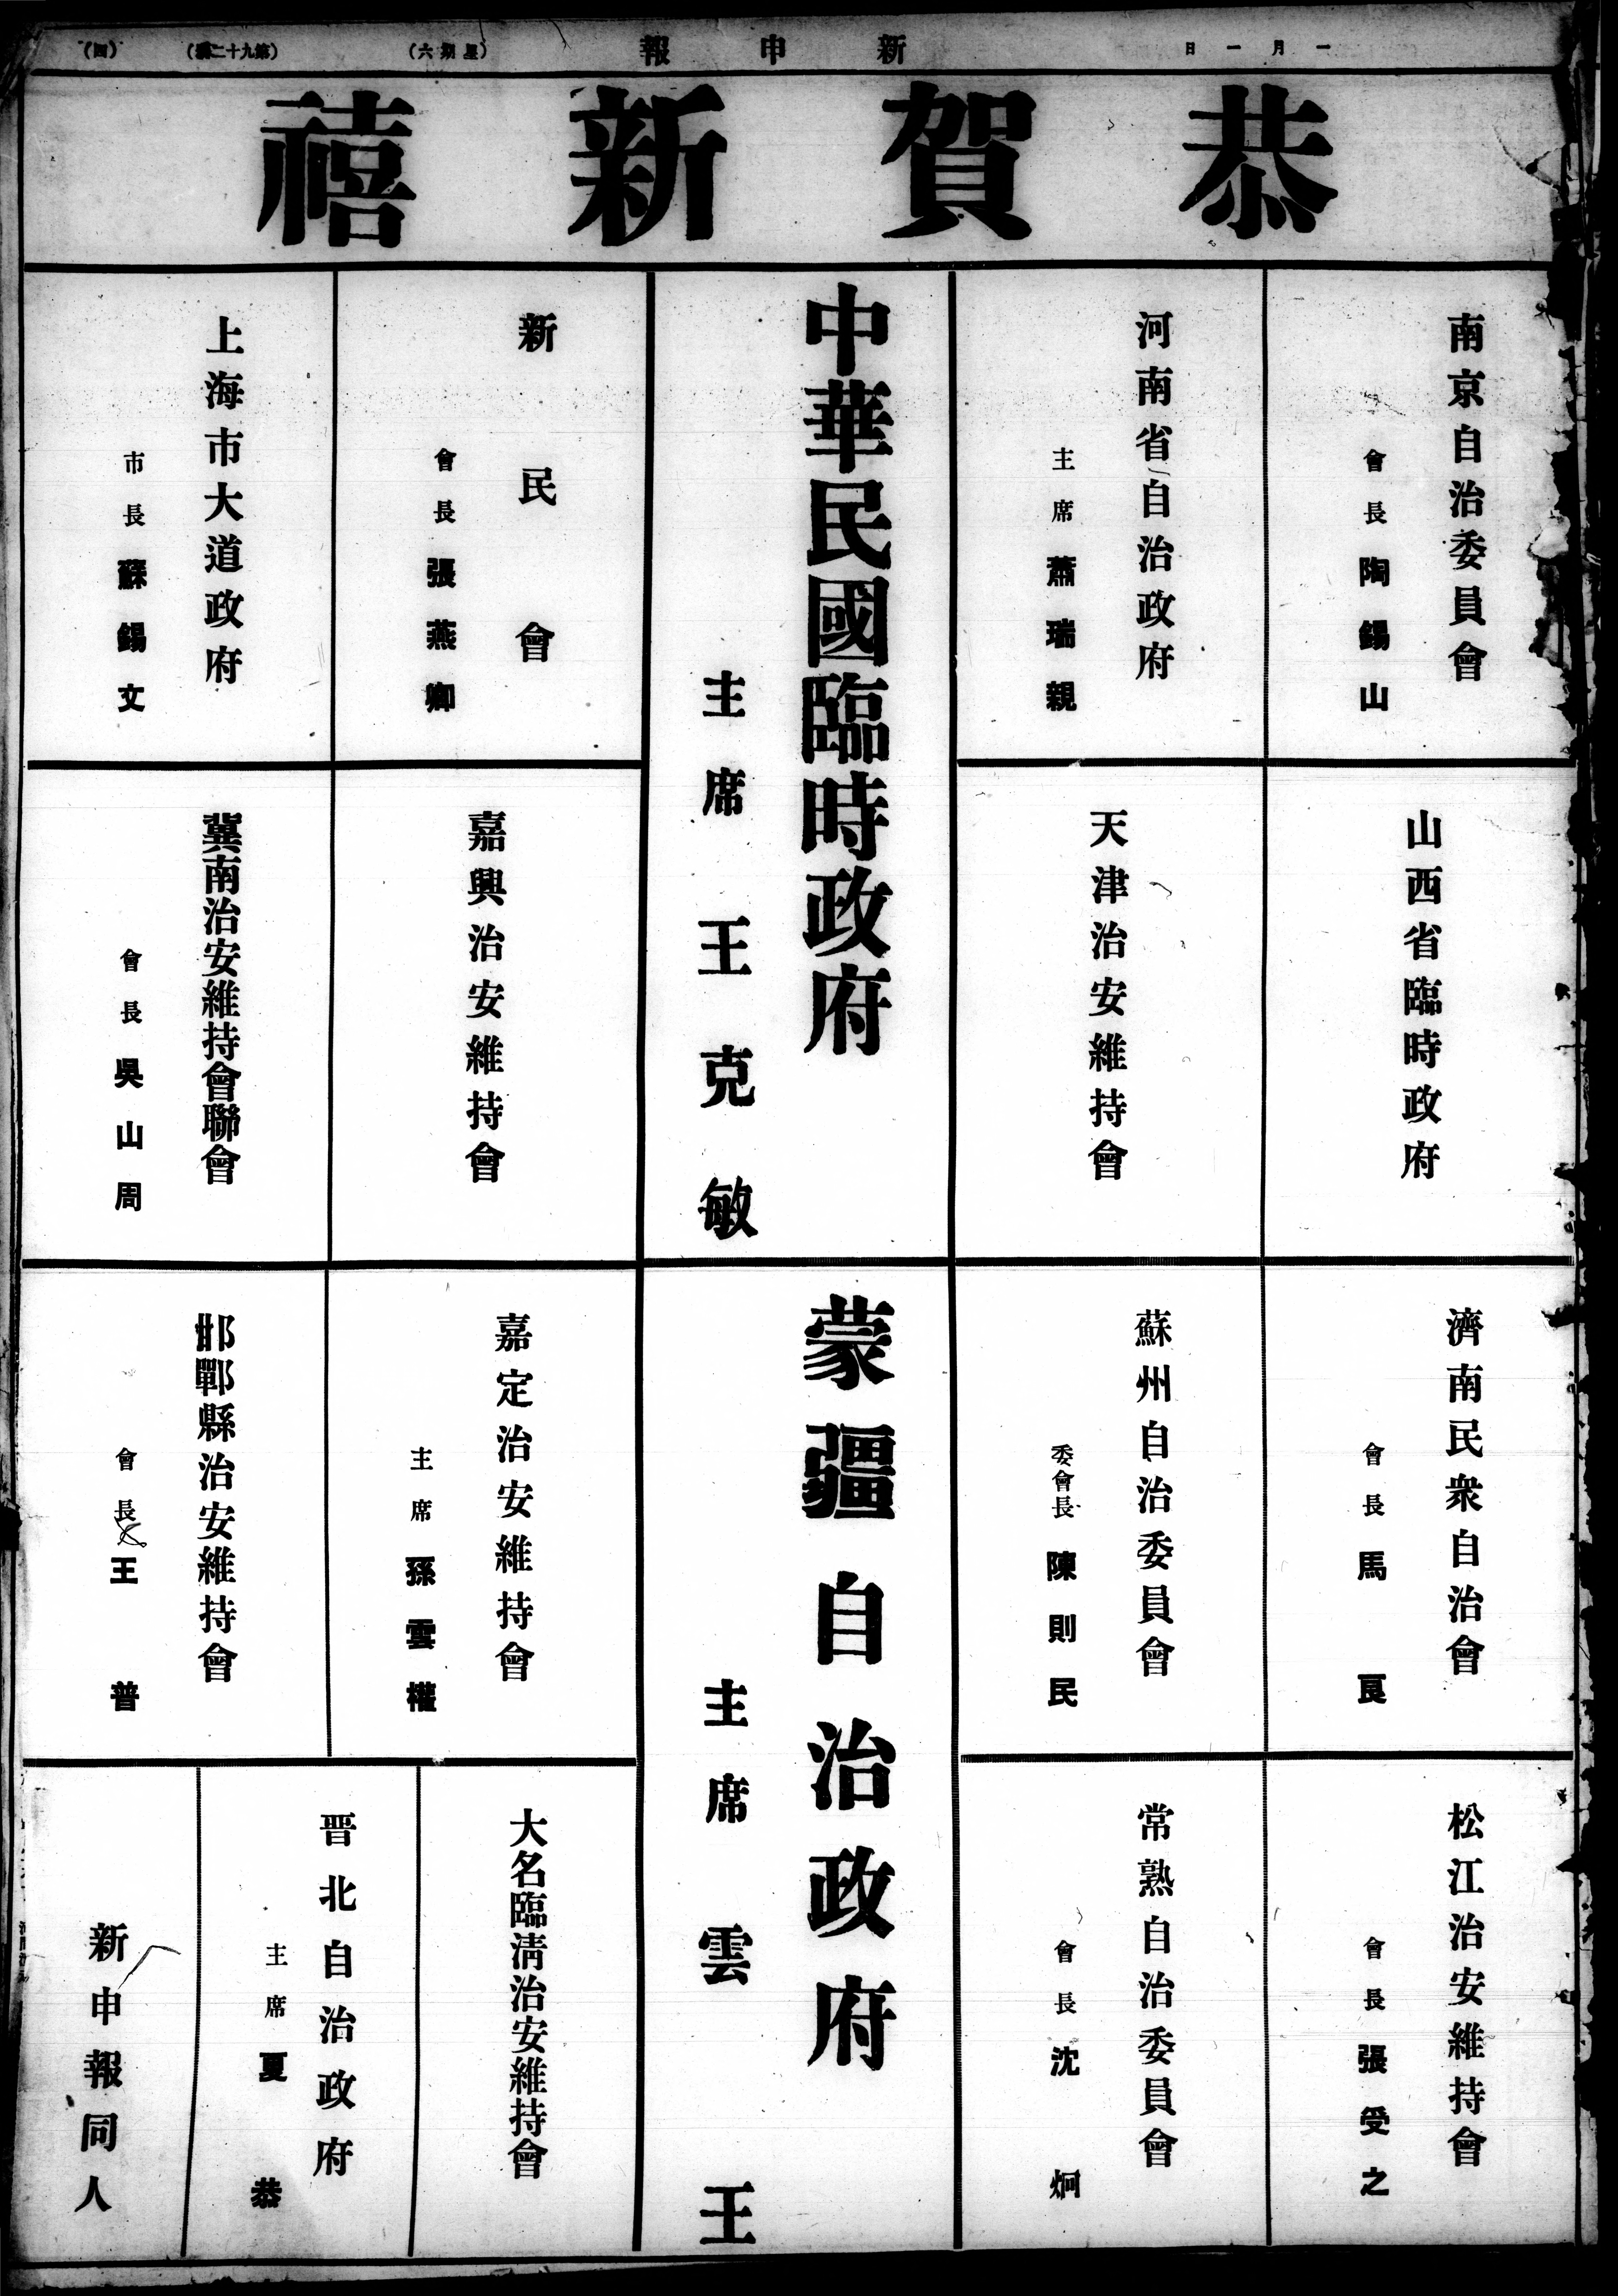 一月一日
新申報
(星期六)
(第九十二號)
(四)
恭賀新禧
南京自治委員會
會長 陶錫山
河南省自治政府
主席 蕭瑞親
中華民國臨時政府
主席 王克敏
新民會
會長 張燕卿
上海市大道政府
市長 蘇錫文
山西省臨時政府
天津治安維持會
嘉興治安維持會
冀南治安維持會聯會
會長 吳山周
濟南民衆自治會
會長 馬良
蘇州自治委員會
委會長 陳則民
蒙疆自治政府
主席 雲王
嘉定治安維持會
主席 孫雲權
邯鄲縣治安維持會
會長 王普
松江治安維持會
會長 張受之
常熟自治委員會
會長 沈炯
大名臨淸治安維持會
晋北自治政府
主席 夏恭
新申報同人